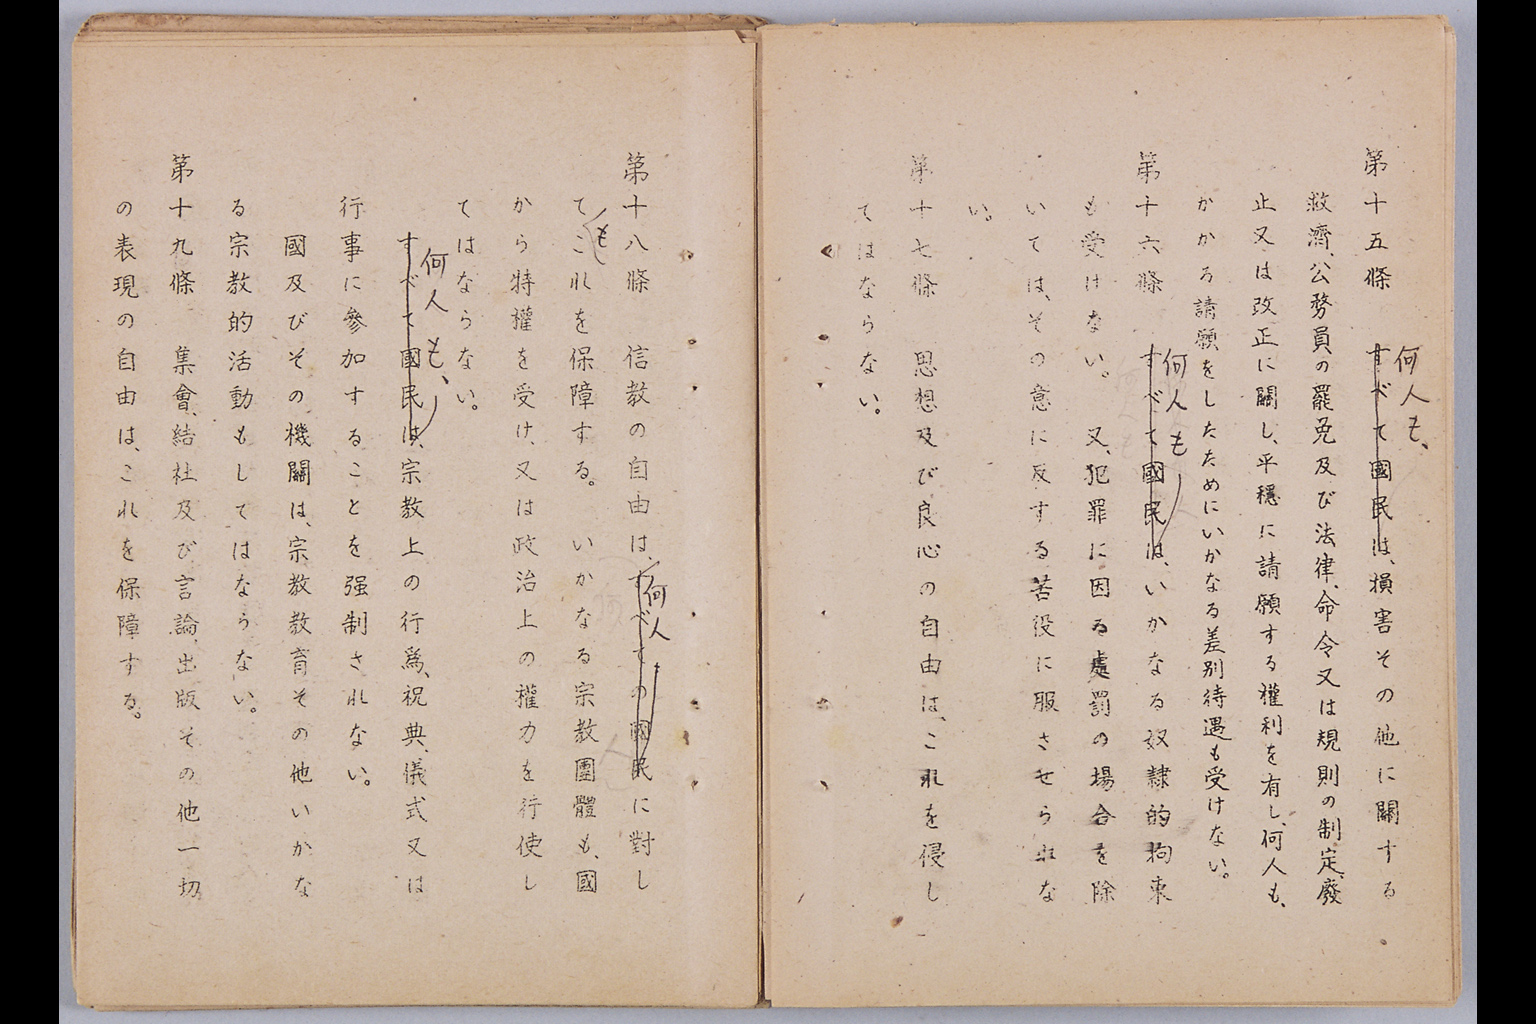 第十五條　すべて國民は、損害その他に關する
何人も、
救濟、公務員の罷免及び法律、命令又は規則の制定、廢
止又は改正に關し、平穩に請願する權利を有し、何人も、
かかる請願をしたためにいかなる差別待遇も受けない。
第十六條　すべて國民は、いかなる奴隷的拘束
何人も
も受けない。又、犯罪に因る處罰の場合を除
いては、その意に反する苦役に服させられな
い。
第十七條　思想及び良心の自由は、これを侵し
てはならない。
第十八條　信教の自由は、すべての國民に對し
何人
てこれを保障する。いかなる宗教團體も、國
も
から特權を受け、又は政治上の權力を行使し
てはならない。
すべて國民は、宗教上の行爲、祝典、儀式又は
何人も、
行事に參加することを强制されない。
國及びその機關は、宗教教育その他いかな
る宗教的活動もしてはならない。
第十九條　集會、結社及び言論、出版その他一切
の表現の自由は、これを保障する。